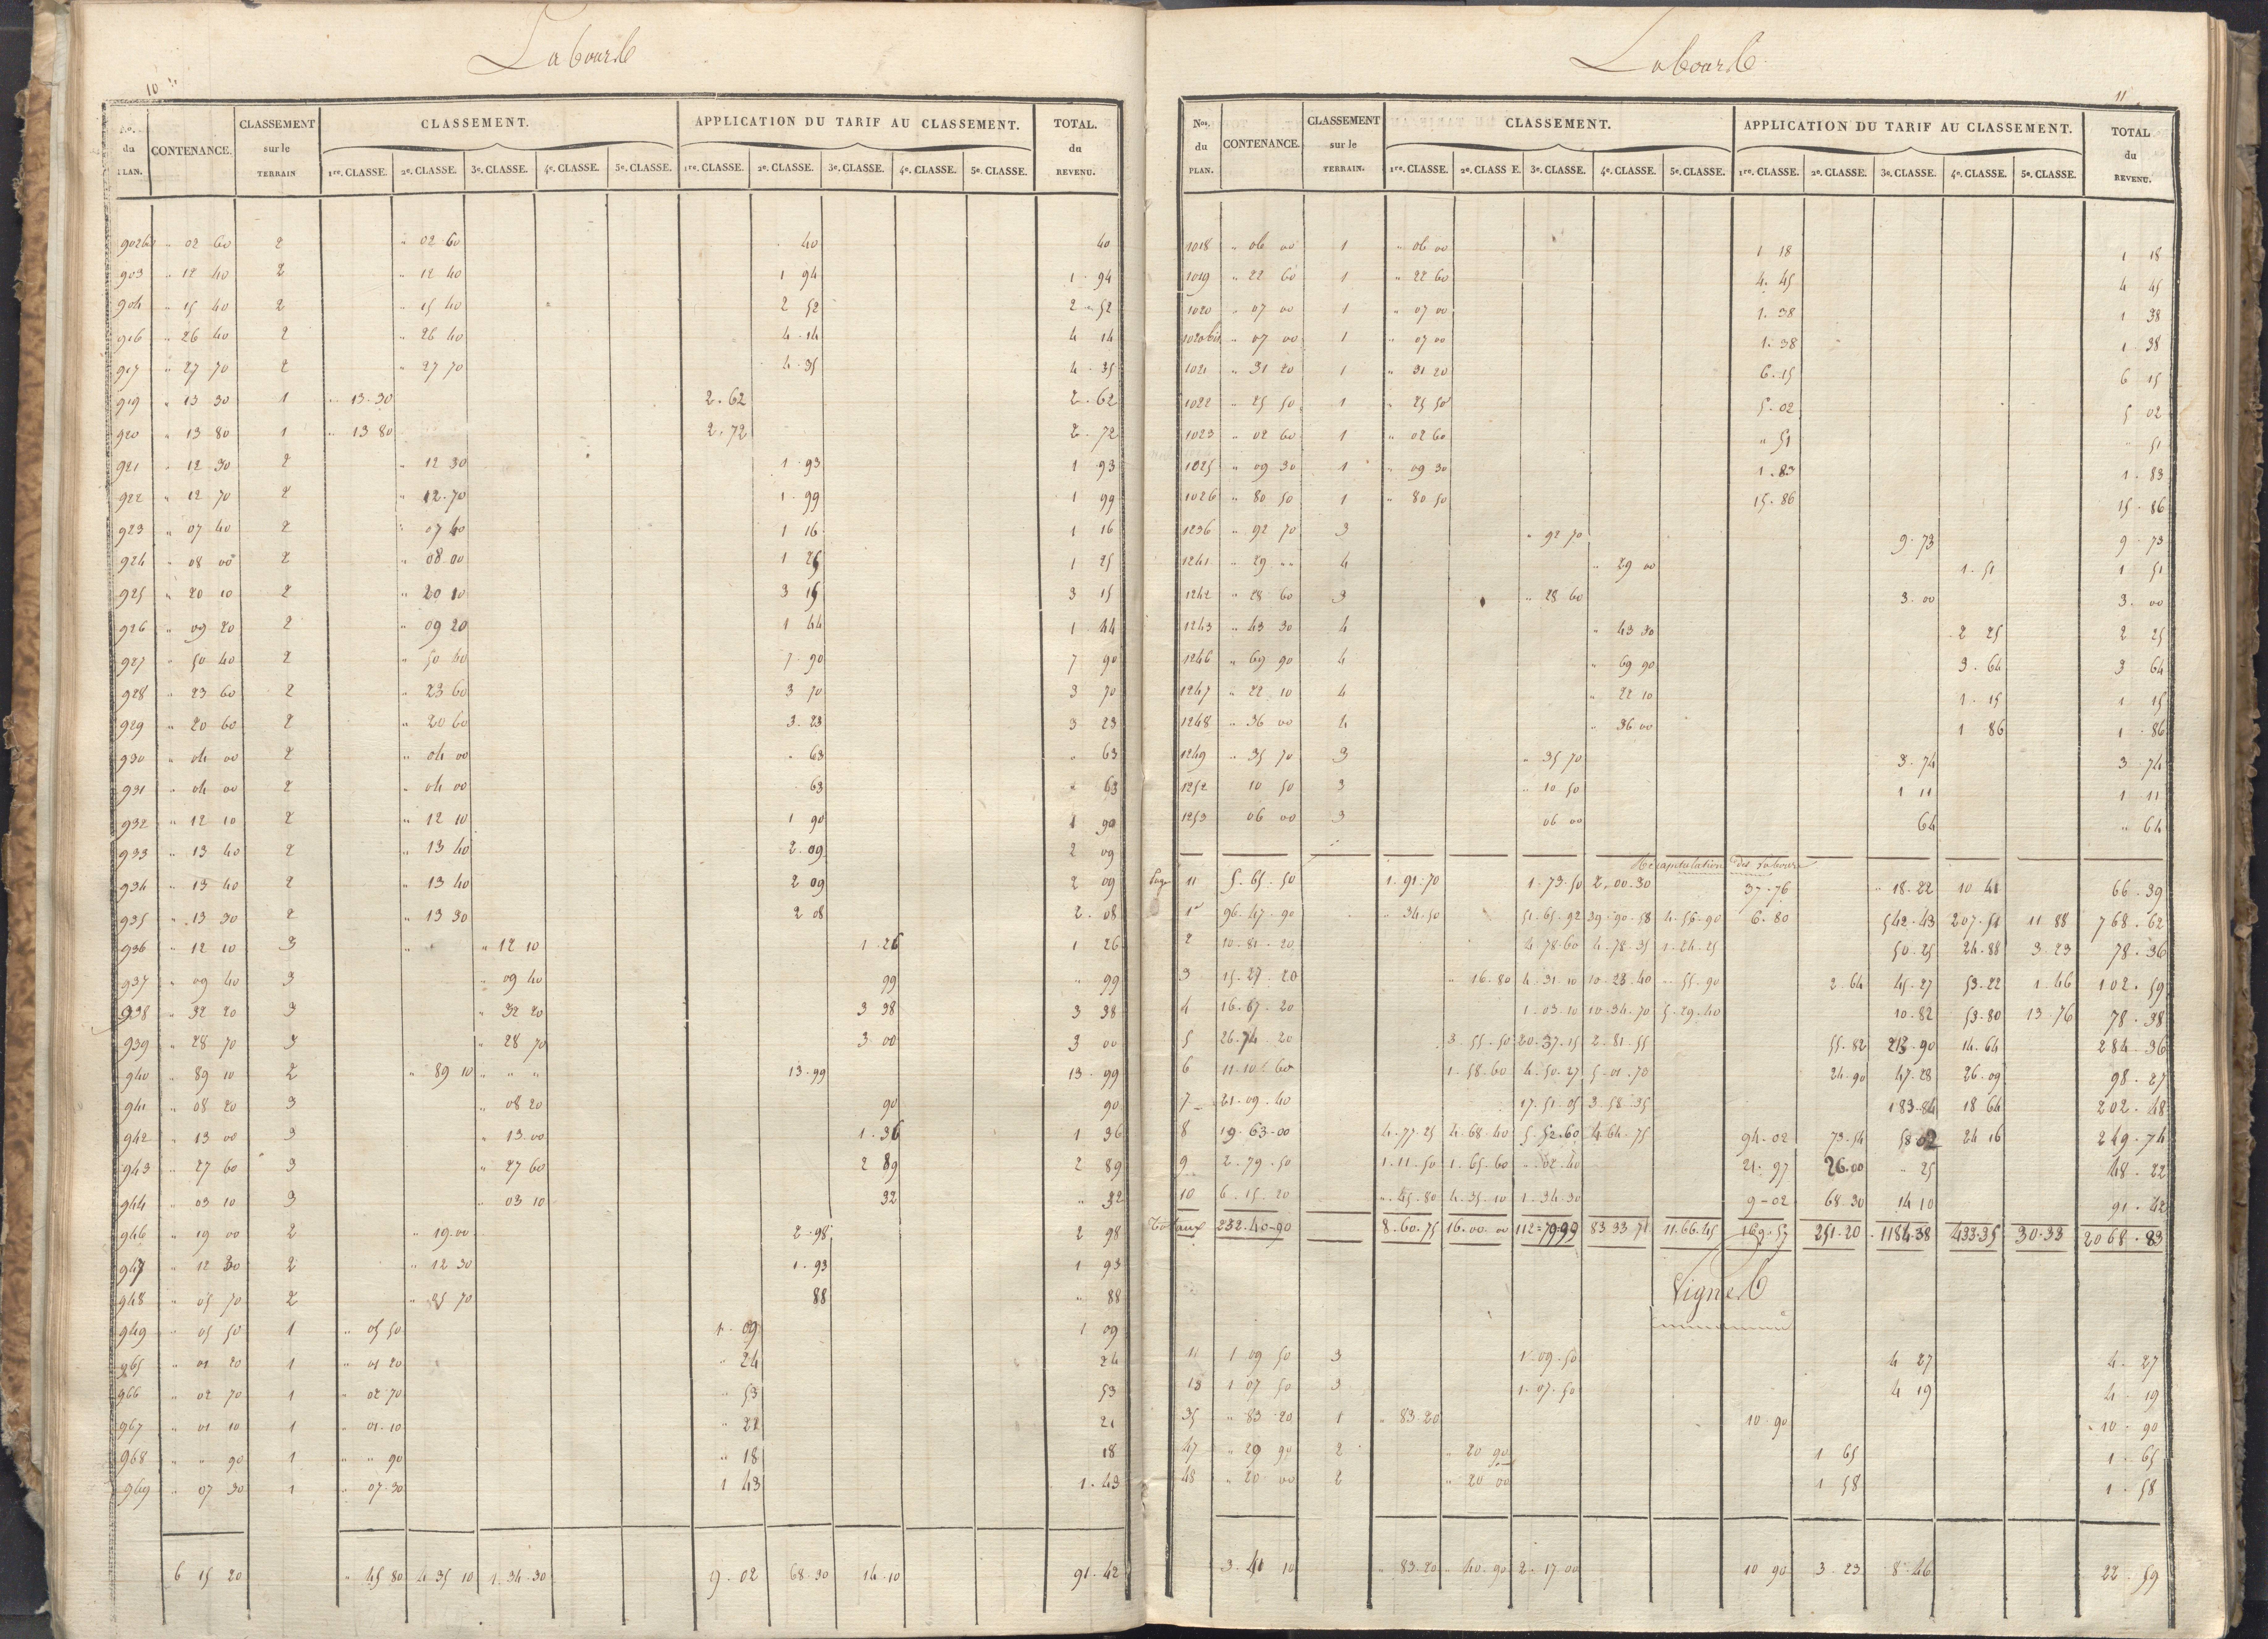 Labours
10
Nos. du PLAN. CONTENANCE. CLASSEMENT sur le TERRAIN CLASSEMENT. APPLICATION DU TARIF AU CLASSEMENT. TOTAL. du REVENU.
1re. CLASSE. 2e. CLASSE. 3e. CLASSE. 4e. CLASSE. 5e. CLASSE. 1re. CLASSE. 2e. CLASSE. 3e. CLASSE. 4e. CLASSE. 5e. CLASSE.
902bis " 02 60 2 " 02 60 40 40
903 " 12 40 2 " 12 40 1 94 1 94
904 " 15 40 2 " 15 40 2 52 2 52
916 " 26 40 2 " 26 40 4 14 4 14
917 " 27 70 2 " 27 70 4 35 4 35
919 " 13 30 1 " 13 30 2. 62 2. 62
920 " 13 80 1 " 13 80 2. 72 2. 72
921 " 12 30 2 " 12 30 1 93 1 93
922 " 12 70 2 " 12.70 1 99 1 99
923 " 07 40 2 " 07 40 1 16 1 16
924 " 08 00 2 " 08 00 1 25 1 25
925 " 20 10 2 " 20 10 3 15 3 15
926 " 09 20 2 " 09 20 1 44 1 44
927 " 50 40 2 " 50 40 7 90 7 90
928 " 23 60 2 " 23 60 3 70 3 70
929 " 20 60 2 " 20 60 3. 23 3 23
930 " 04 00 2 " 04 00 " 63 " 63
931 " 04 00 2 " 04 00 63 " 63
932 " 12 10 2 " 12 10 1 90 1 90
933 " 13 40 2 " 13 40 2. 09 2 09
934 " 13 40 2 " 13 40 2 09 2 09
935 " 13 30 2 " 13 30 2 08 2. 08
936 " 12 10 3 " 12 10 1 26 1 26
937 " 09 40 3 " 09 40 99 " 99
938 " 32 20 3 " 32 20 3 38 3 38
939 " 28 70 3 " 28 70 3 00 3 00
940 " 89 10 2 " 89 10 " " " 13. 99 13. 99
941 " 08 20 3 " 08 20 90 90
942 " 13 00 3 " 13.00 1. 36 1 36
943 " 27 60 3 " 27 60 2 89 2 89
944 " 03 10 3 " 03 10 32 " 32
946 " 19 00 2 " 19.00 2. 98 2 98
947 " 12 30 2 " 12 30 1. 93 1 93
948 " 05 70 2 " 05 70 88 " 88
949 " 05 50 1 " 05 50 1. 09 1 09
965 " 01 20 1 " 01 20 " 24 24
966 " 02 70 1 " 02 70 " 53 53
967 " 01 10 1 " 01.10 " 22 21
968 " " 90 1 " " 90 " 18 18
969 " 07 30 1 " 07.30 1 43 1. 43
6 15 20 " 45 80 4 35 10 1. 34. 30 9. 02 68. 30 14. 10 91. 42
Labours
11
Nos. du PLAN. CONTENANCE. CLASSEMENT sur le TERRAIN. CLASSEMENT. APPLICATION DU TARIF AU CLASSEMENT. TOTAL du REVENU.
1re. CLASSE. 2e. CLASSE. 3e. CLASSE. 4e. CLASSE. 5e. CLASSE. 1re. CLASSE. 2e. CLASSE. 3e. CLASSE. 4e. CLASSE. 5e. CLASSE.
1018 " 06 00 1 " 06 00 1 18 1 18
1019 " 22 60 1 " 22 60 4. 45 4 45
1020 " 07 00 1 " 07 00 1. 38 1 38
1020bis " 07 00 1 " 07 00 1. 38 1 38
1021 " 31 20 1 " 31 20 6. 15 6 15
1022 " 25 50 1 " 25 50 5. 02 5 02
1023 " 02 60 1 " 02 60 " 51 " 51
1025 " 09 30 1 " 09 30 1. 83 1. 83
1026 " 80 50 1 " 80 50 15. 86 15. 86
1236 " 92 70 3 " 92 70 9. 73 9. 73
1241 " 29 "" 4 " 29 00 1. 51 1 51
1242 " 28 60 3 " 28 60 3. 00 3. 00
1243 " 43 30 4 " 43 30 2 25 2 25
1246 " 69 90 4 " 69 90 3. 64 3 64
1247 " 22 10 4 " 22 10 1. 15 1 15
1248 " 36 00 4 " 36 00 1 86 1. 86
1249 " 35 70 3 " 35 70 3. 74 3 74
1252 10 50 3 " 10 50 1 11 1 11
1253 06 00 3 06 00 64 " 64
Récapitulation des Labours
Page 11 5. 65. 50 1. 91. 70 1. 73. 50 2. 00. 30 37. 76 " 18. 22 10 41 66. 39
1re 96. 47. 90 " 34. 50 51. 65. 92 39. 90. 58 4. 56. 90 6. 80 542. 43 207. 51 11 88 768. 62
2 10. 81. 20 4 78. 60 4. 78. 35 1. 24. 25 50. 25 24. 88 3. 23 78. 36
3 15. 27. 20 " 16. 80 4. 31. 10 10. 23. 40 " 55. 90 2 64 45. 27 53. 22 1. 46 102. 59
4 16. 67. 20 1. 03. 10 10. 34. 70 5. 29. 40 10. 82 53. 80 13. 76 78. 38
5 26. 74. 20 3. 55. 50 20. 37. 15 2. 81. 55 55. 82 213. 90 14. 64 284. 36
6 11. 10. 60 1. 58. 60 4. 50. 27 5. 01. 70 24. 90 47. 28 26. 09 98. 27
7 21. 09. 40 17. 51. 05 3. 58. 35 183. 84 18 64 202. 48
8 19. 63. 00 4. 77. 25 4. 68. 40 5. 52. 60 4. 64. 75 94. 02 73. 54 58. 02 24 16 249. 74
9 2. 79. 50 1. 11. 50 1. 65. 60 " 02. 40 21. 97 26. 00 " 25 48. 22
10 6. 15. 20 " 45. 80 4. 35. 10 1. 34. 30 9 - 02 68. 30 14 10 91. 42
Totaux 232. 40. 90 8. 60. 75 16. 00. 00 112. 79 99 83 33 71 11. 66. 45 169. 57 251. 20 1184. 38 433. 35 30. 33 2068. 83
Vignes
11 1 09 50 3 1. 09. 50 4 27 4. 27
13 1 07 50 3 1. 07. 50 4 19 4. 19
35 " 83 20 1 " 83 20 10. 90 10. 90
47 " 20 90 2 " 20 90 1 65 1. 65
48 " 20 00 2 " 20 00 1 58 1. 58
3. 41 10 " 83. 20 " 40. 90 2. 17. 00 10 90 3. 23 8. 46 22. 59